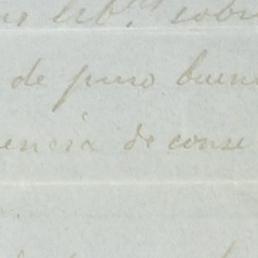 lib.tas sobr
de puro buen
encia de conse